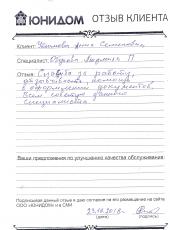 ЮНИДОМ ОТЗЫВ КЛИЕНТА
Клиент: Анна Семеновна
Специалист: Людмила П.
Отзыв: Спасибо за работу,
помощь
в оформлении документов.
Всем советую данного
специалиста
Ваши предложения по улучшению качества обслуживания:
Подписывая данный отзыв я даю согласие на его размещение на сайте
ООО «ЮНИДОМ» и в СМИ
23.10.2018г.
(дата) (подпись)